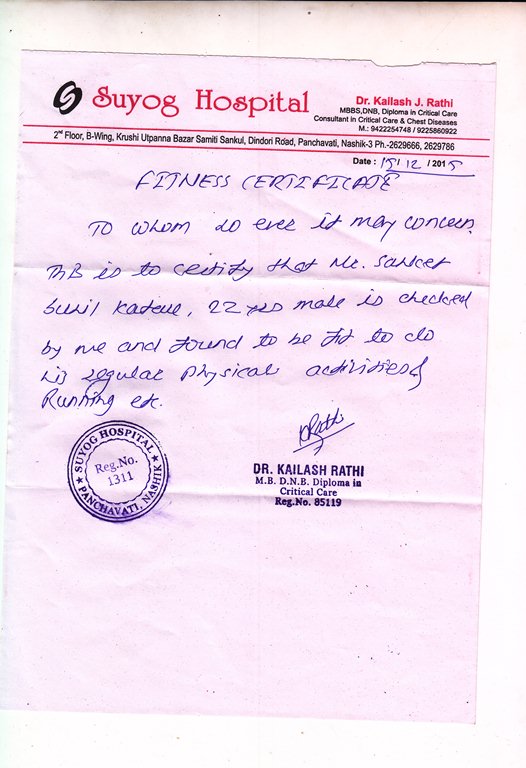 Suyog Hospital
Dr. Kailash J. Rathi
MBBS,DNB, Diploma in Critical Care
Consultant in Critical Care & Chest Diseases
M.: 9422254748 / 9225860922
2nd Floor, B-Wing, Krushi Utpanna Bazar Samiti Sankul, Dindori Road, Panchavati, Nashik-3 Ph.-2629666, 2629786
Date : 15/12/2015
FITNESS CERTIFICATE
To whom so ever it may concern.
This is to certify that Mr. Sanket
Sunil , 22 yrs male is checked
by me and found to be fit to do
his regular physical activities &
Running etc.
SUYOG HOSPITAL
Reg.No.
1311
PANCHAVATI, NASHIK
Rathi
DR. KAILASH RATHI
M.B. D.N.B. Diploma in
Critical Care
Reg.No. 85119